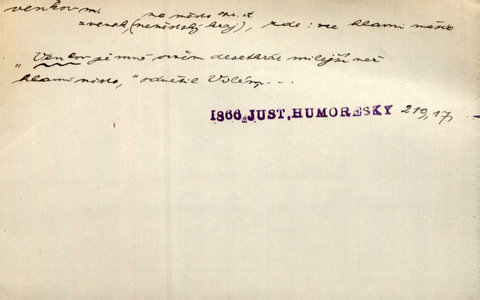 venkov m.
= venek, (neměstský kraj), zde: ne hlavní město
"Venkov je mně ovšem desetkrát milejší než
hlavní město," odvětil Volény...
1866, JUST, HUMORESKY 219,17,